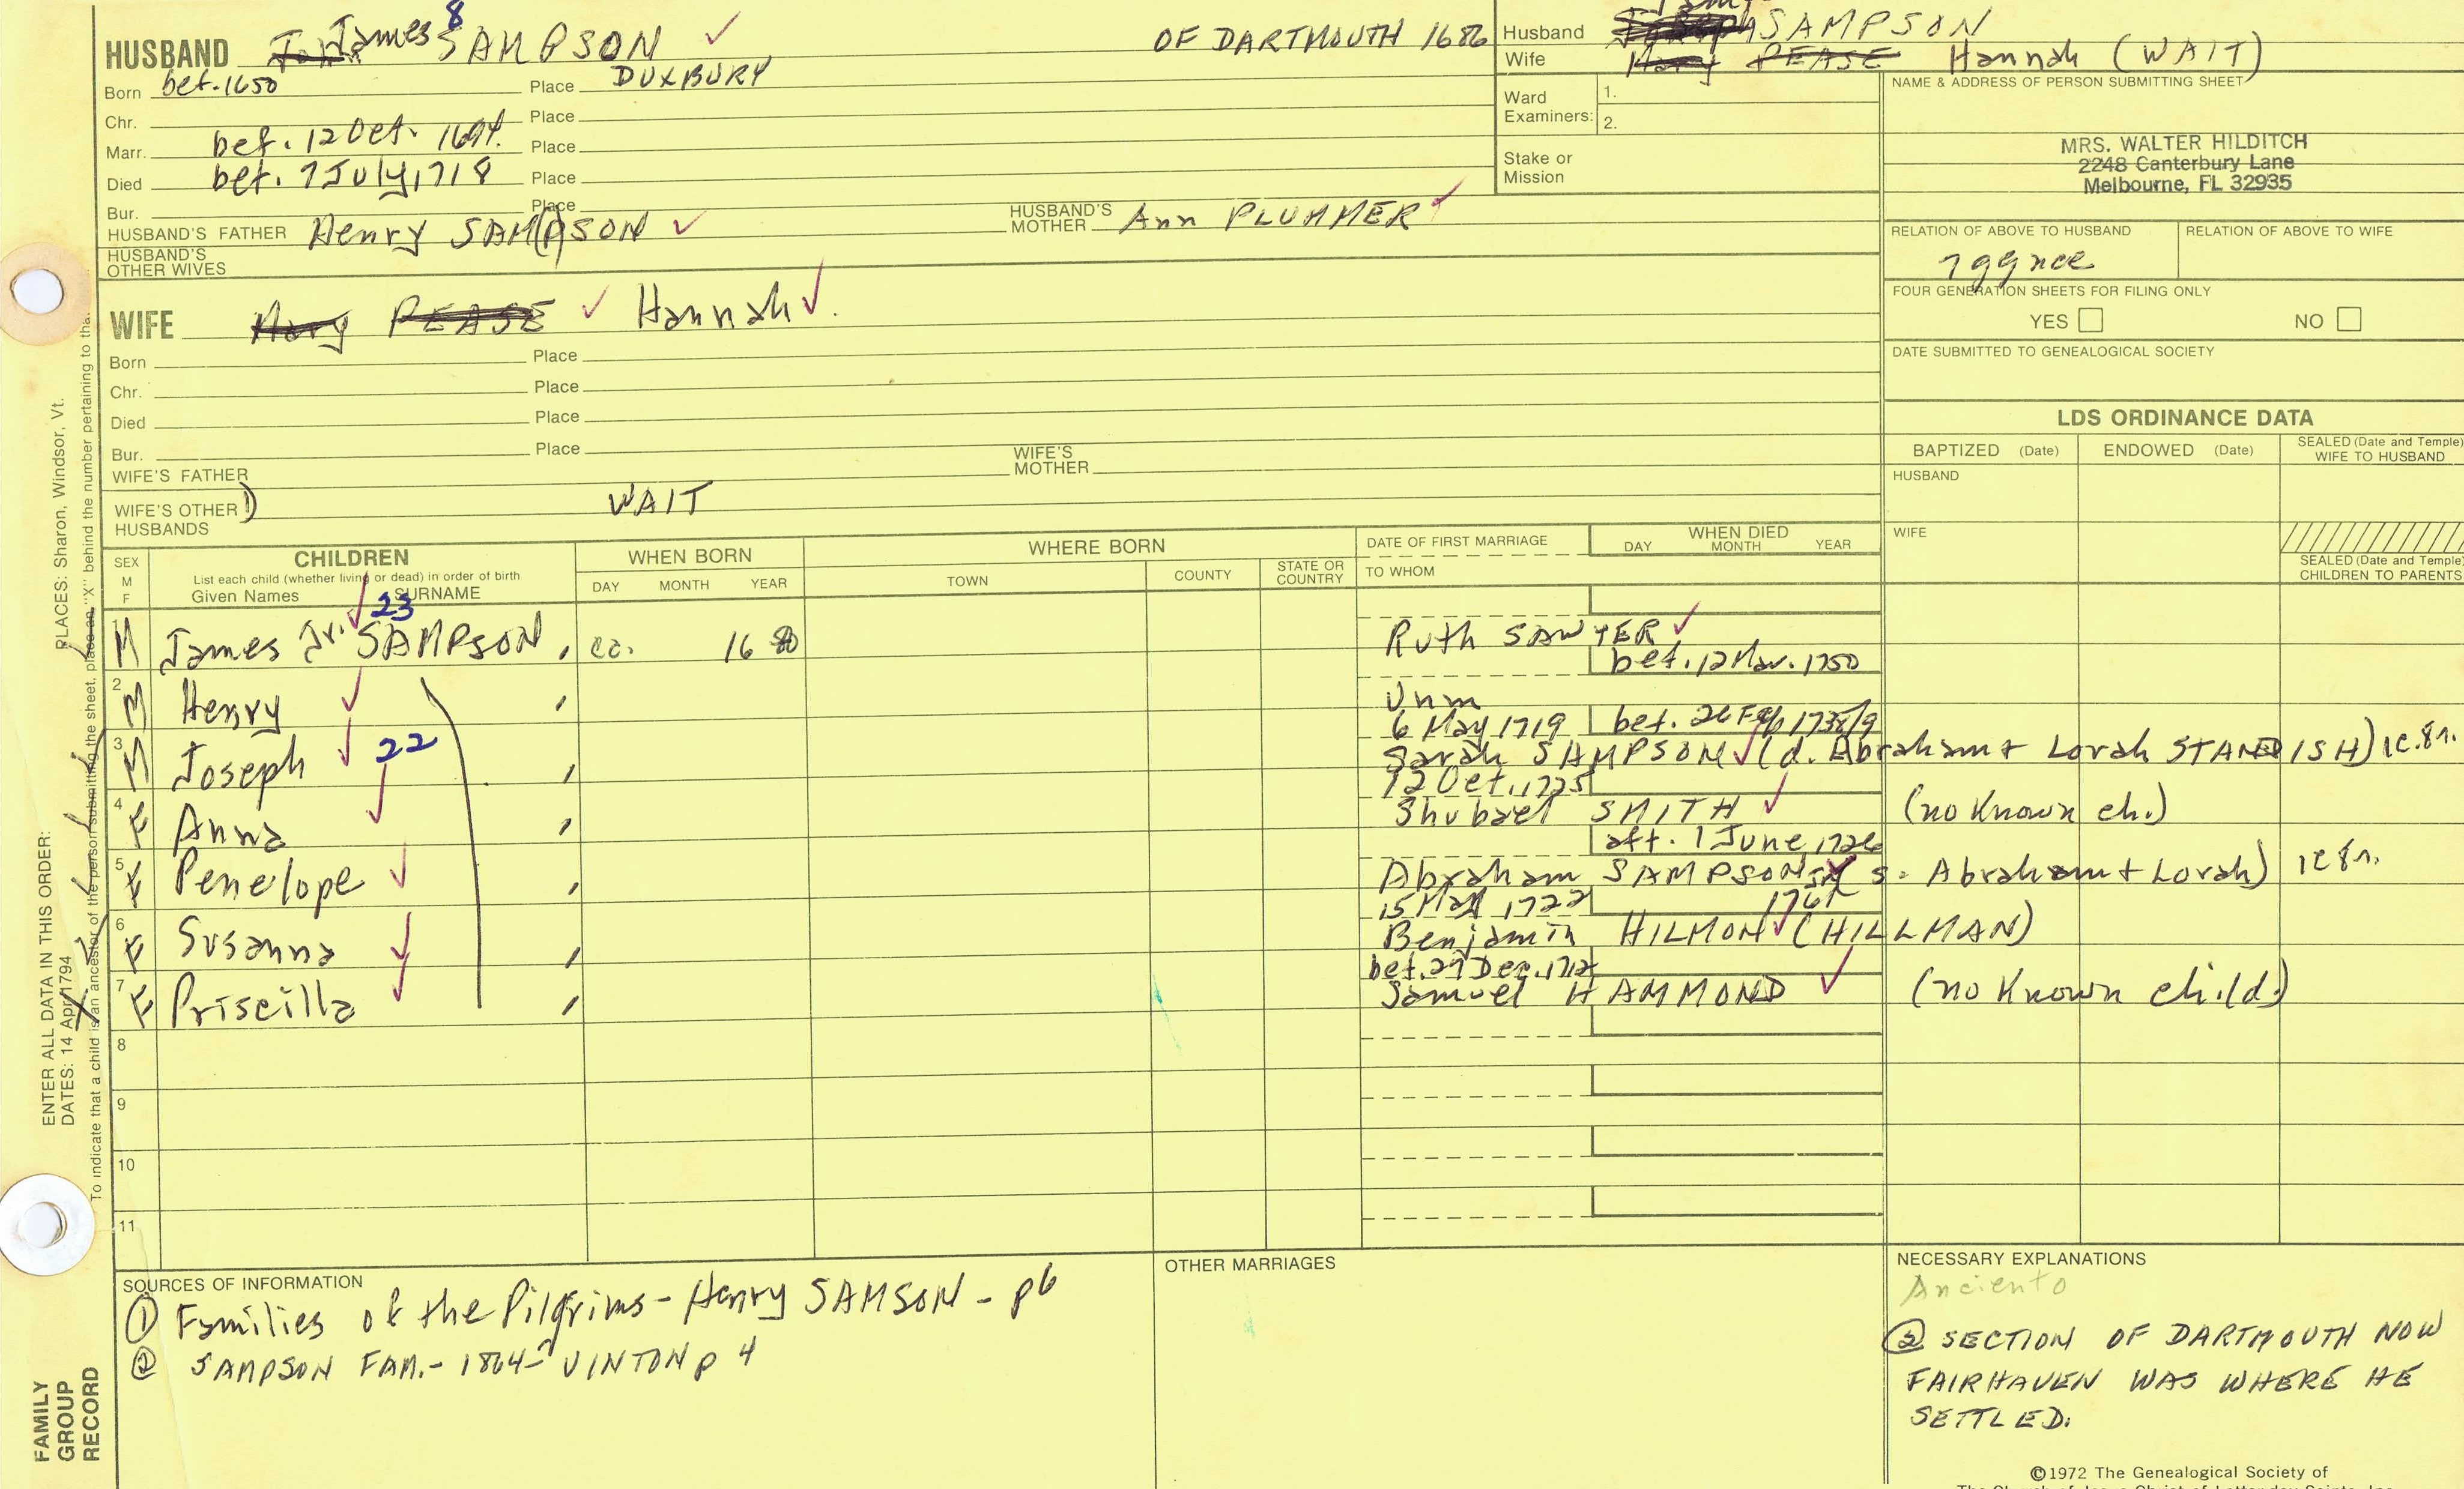 HUSBAND James 8 SAMPSON OF DARTMOUTH 1686
Born bef. 1650 Place DUXBURY
Chr. Place
Marr. bef. 12 Oct. 1694. Place
Died bet. 7 July, 1718 Place
Bur. Place
HUSBAND'S FATHER Henry SAM(P)SON HUSBAND'S MOTHER Ann PLUMMER
HUSBAND'S OTHER WIVES
WIFE Mary PEASE Hannah
Born Place
Chr. Place
Died Place
Bur. Place
WIFE'S FATHER WIFE'S MOTHER
WIFE'S OTHER HUSBANDS 1) WAIT
Husband SAMPSON
Wife Mary PEASE Hannah (WAIT)
Ward Examiners: 1.
2.
Stake or Mission
NAME & ADDRESS OF PERSON SUBMITTING SHEET
MRS. WALTER HILDITCH
2248 Canterbury Lane
Melbourne, FL 32935
RELATION OF ABOVE TO HUSBAND RELATION OF ABOVE TO WIFE
7 gg nce
FOUR GENERATION SHEETS FOR FILING ONLY
YES NO
DATE SUBMITTED TO GENEALOGICAL SOCIETY
LDS ORDINANCE DATA
BAPTIZED (Date) ENDOWED (Date) SEALED (Date and Temple) WIFE TO HUSBAND
HUSBAND
WIFE
SEALED (Date and Temple) CHILDREN TO PARENTS
SEX M F
CHILDREN
List each child (whether living or dead) in order of birth
Given Names SURNAME
WHEN BORN
DAY MONTH YEAR
WHERE BORN
TOWN COUNTY STATE OR COUNTRY
DATE OF FIRST MARRIAGE
TO WHOM
WHEN DIED
DAY MONTH YEAR
1 M James Jr. SAMPSON 23 ca. 1680 Ruth SAWYER
bet. 12 Mar. 1750
2 M Henry Unm
6 May 1719 bet. 26 Feb 1738/9
3 M Joseph 22 Sarah SAMPSON (d. Abraham + Lorah STANDISH)
12 Oct., 1725
4 F Anna Shubael SMITH (no known ch.)
aft. 1 June, 1726
5 F Penelope Abraham SAMPSON (s. Abraham + Lorah)
15 1722
6 F Susanna Benjamin HILMON (HILLMAN)
bet. 29 Dec. 1712
7 F Priscilla Samuel HAMMOND (no known child.)
8
9
10
11
SOURCES OF INFORMATION
① Families of the Pilgrims - Henry SAMSON - p6
② SAMPSON FAM. - 1864 - VINTON p 4
OTHER MARRIAGES
NECESSARY EXPLANATIONS
Anciento
② SECTION OF DARTMOUTH NOW
FAIRHAVEN WAS WHERE HE
SETTLED.
©1972 The Genealogical Society of
The Church of Jesus Christ of Latter-day Saints, Inc.
ENTER ALL DATA IN THIS ORDER:
DATES: 14 Apr 1794
PLACES: Sharon, Windsor, Vt.
To indicate that a child is an ancestor of the person submitting the sheet, place an "X" behind the number pertaining to tha
FAMILY
GROUP
RECORD